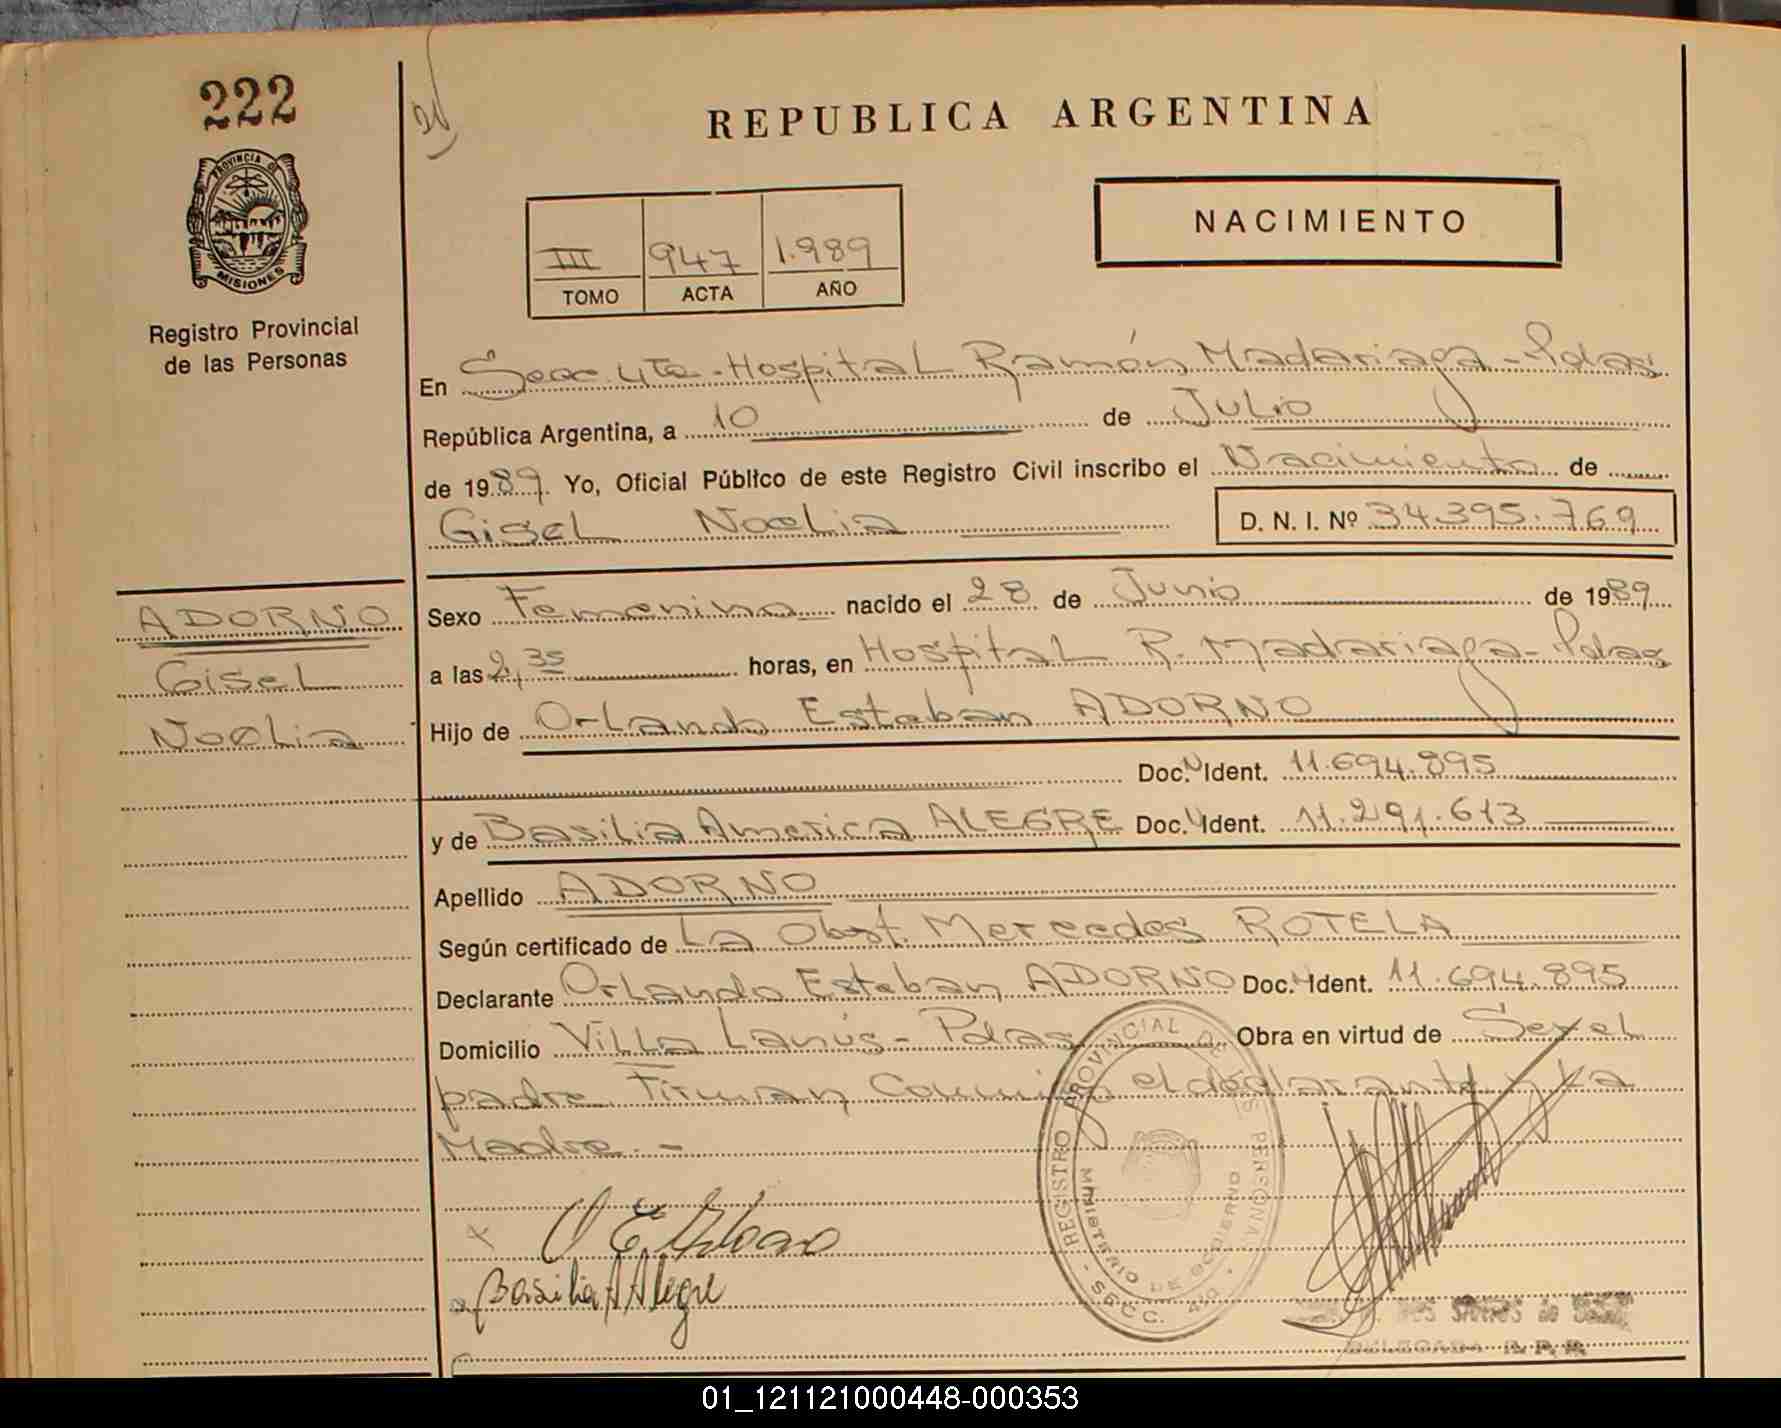 222
PROVINCIA DE
MISIONES
Registro Provincial
de las Personas
REPUBLICA ARGENTINA
NACIMIENTO
III 947 1.989
TOMO ACTA AÑO
En Secc. 4ta - Hospital Ramón Madariaga - Pdas
República Argentina, a 10 de Julio
de 1989. Yo, Oficial Público de este Registro Civil inscribo el Nacimiento de
Gisel Noelia D. N. I. Nº 34395.769
ADORNO
Gisel
Noelia
Sexo Femenino nacido el 28 de Junio de 1989
a las 2,35 horas, en Hospital R. Madariaga - Pdas
Hijo de Orlando Esteban ADORNO
Doc. N Ident. 11.694.895
y de Basilia America ALEGRE Doc. N Ident. 11.291.613
Apellido ADORNO
Según certificado de La Obst. Mercedes ROTELA
Declarante Orlando Esteban ADORNO Doc. N Ident. 11.694.895
Domicilio Villa Lanús - Pdas Obra en virtud de Ser el
padre Firman Conmigo el declarante y la
Madre. -
REGISTRO PROVINCIAL DE LAS PERSONAS
MINISTERIO DE GOBIERNO
x O E Adorno
Basilia A Alegre
SANTOS de
DELEGADA R.P.P.
01_121121000448-000353